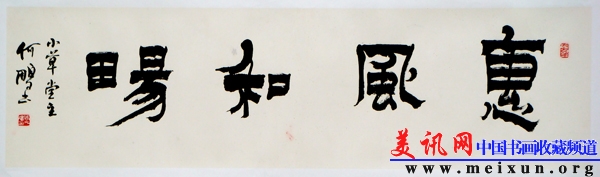 惠風和暢
小草堂主
何鵬書
美讯网
中国书画收藏频道
www.meixun.org